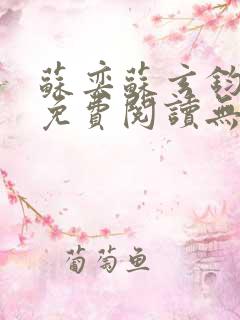 蘇奕蘇玄鈞
免費閱讀無
葡萄鱼